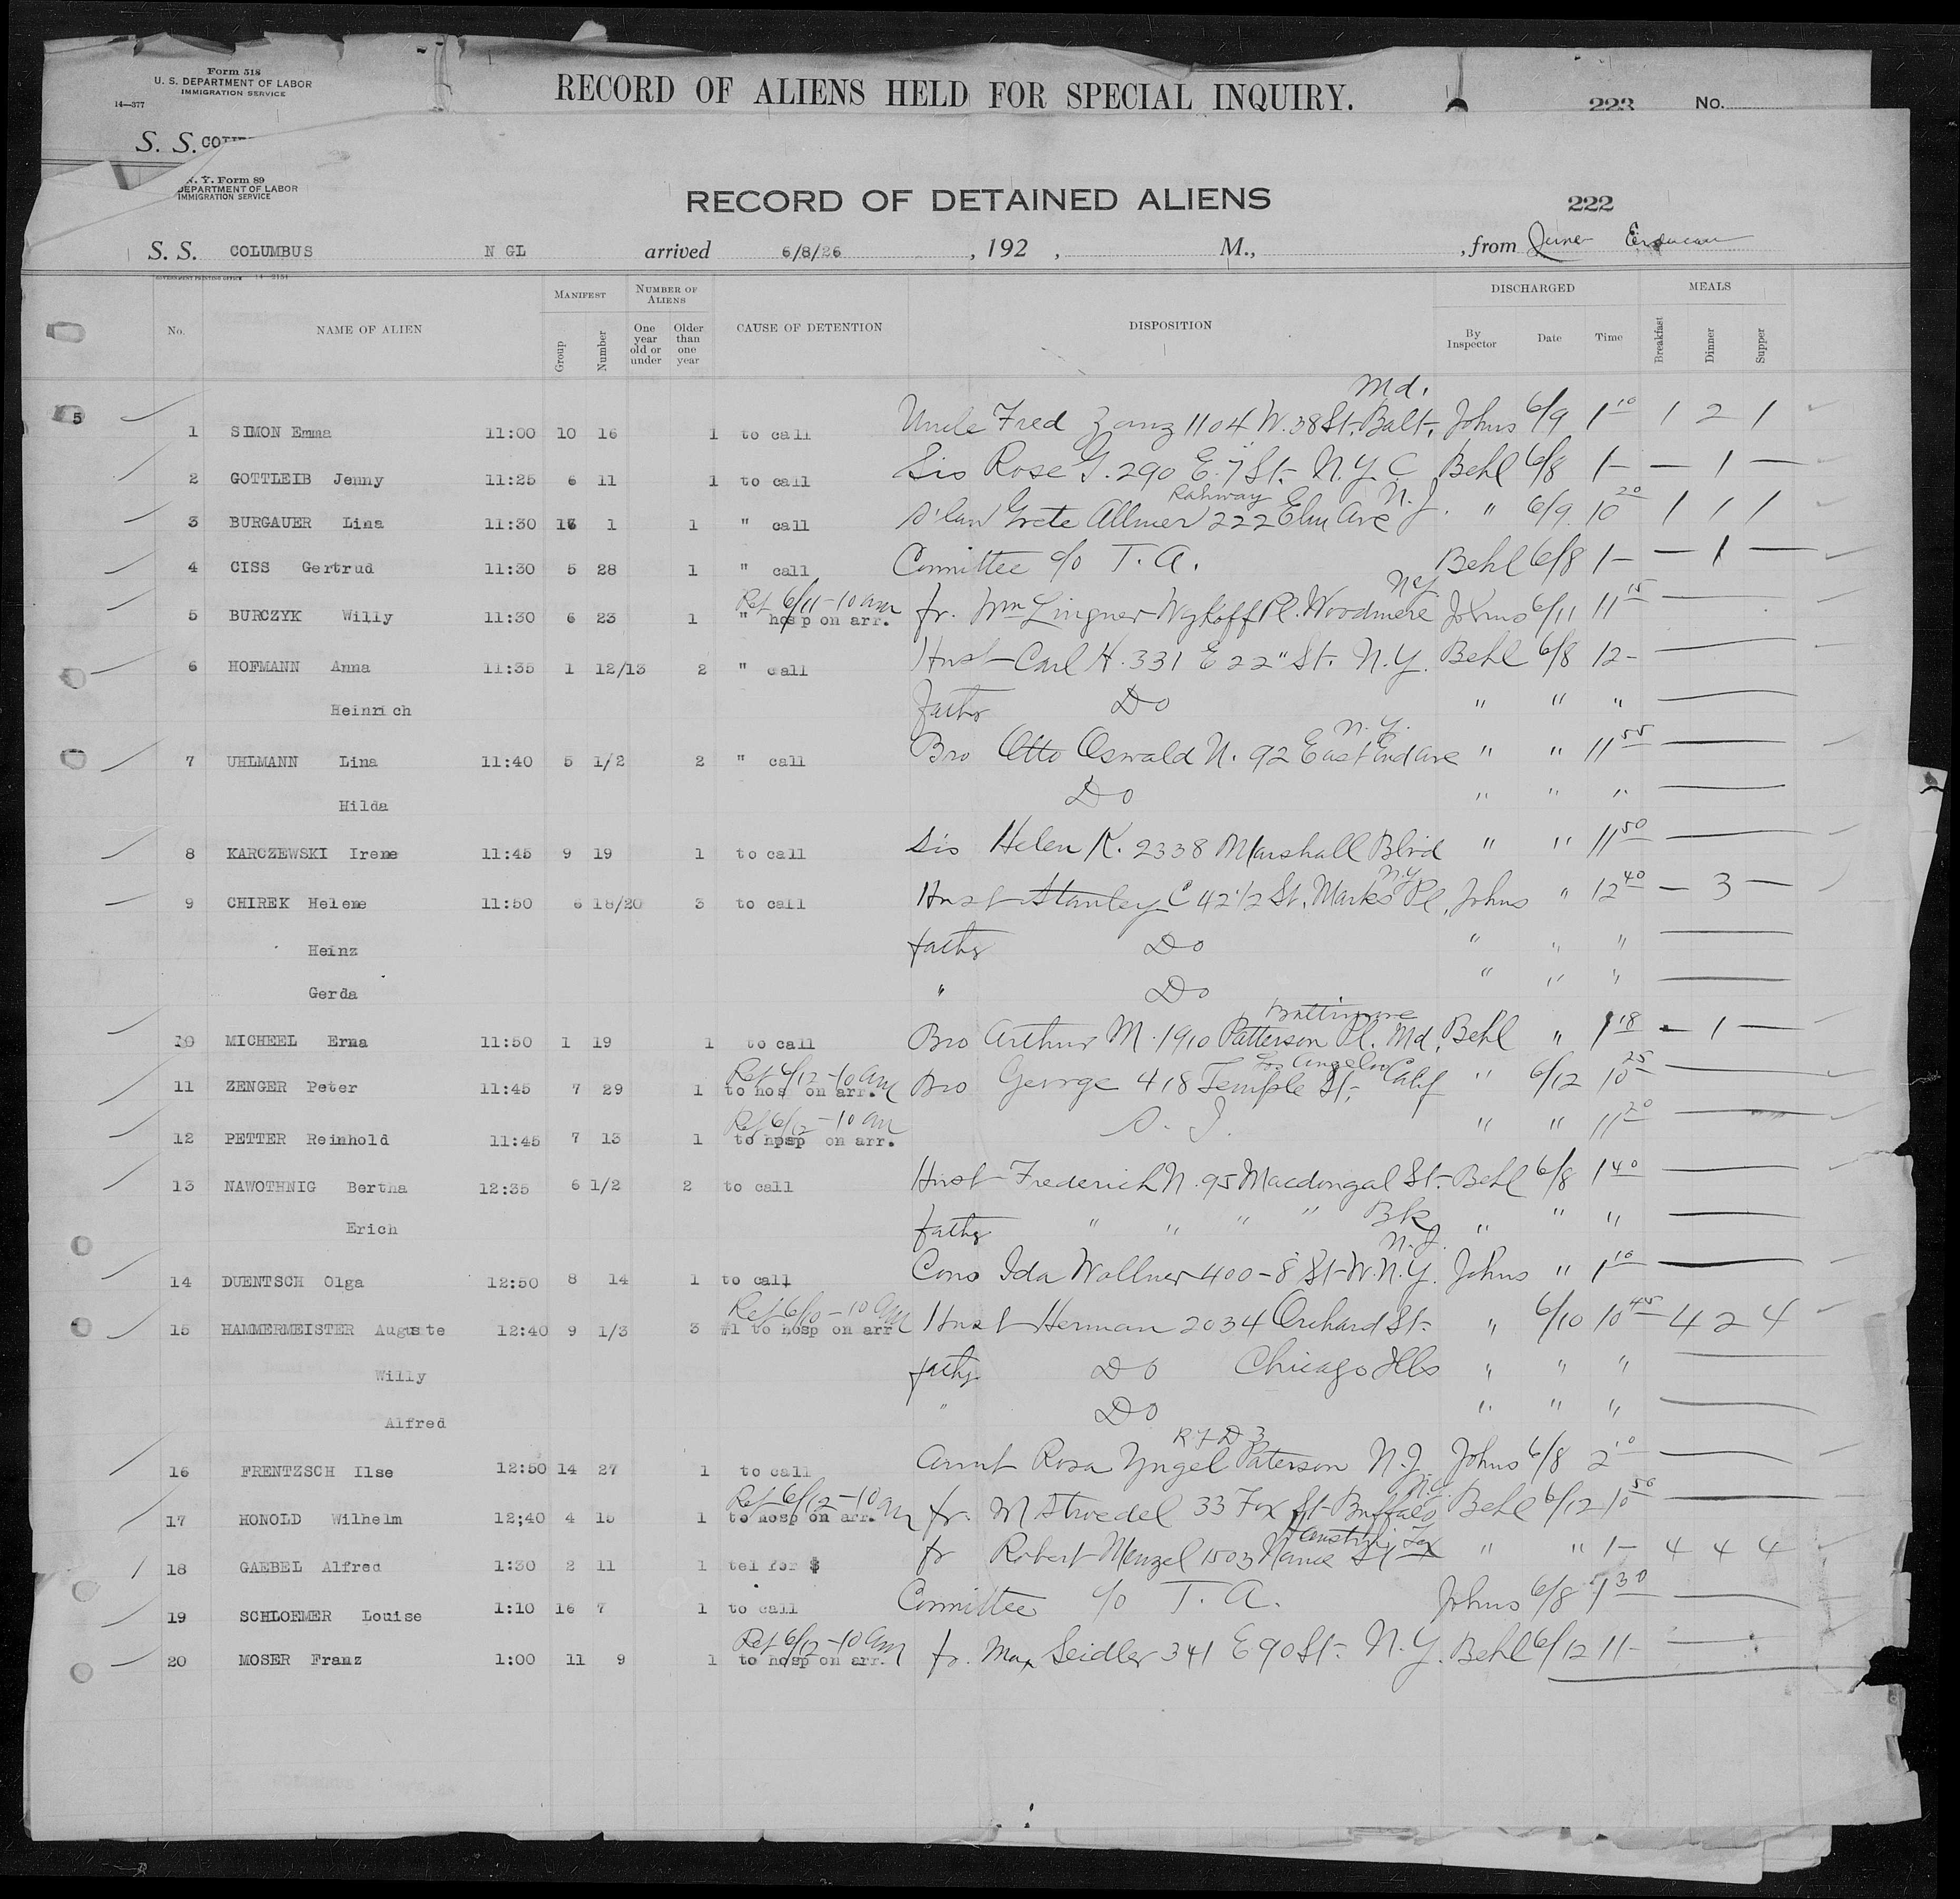 Form 518
U. S. DEPARTMENT OF LABOR
IMMIGRATION SERVICE
14—377
RECORD OF ALIENS HELD FOR SPECIAL INQUIRY.
223 No.
S. S.
N. Y. Form 89
DEPARTMENT OF LABOR
IMMIGRATION SERVICE
RECORD OF DETAINED ALIENS
222
S. S. COLUMBUS N GL arrived 6/8/26 , 192 , M., , from
GOVERNMENT PRINTING OFFICE
No. NAME OF ALIEN MANIFEST Group Number NUMBER OF ALIENS One year old or under Older than one year CAUSE OF DETENTION DISPOSITION DISCHARGED By Inspector Date Time MEALS Breakfast Dinner Supper
5
Md.
1 SIMON Emma 11:00 10 16 1 to call Uncle Fred Zanz 1104 W. 38 St. Balt. Johns 6/9 1 10 1 2 1
2 GOTTLEIB Jenny 11:25 6 11 1 to call Sis Rose G. 290 E. 7 St. N.Y.C. Behl 6/8 1— — 1 —
Rahway N.J.
3 BURGAUER Lina 11:30 1 1 " call S'law Grete Allmer 222 Elm Ave " 6/9 10 20 1 1 1
4 CISS Gertrud 11:30 5 28 1 " call Committee c/o T. A. Behl 6/8 1— — 1 —
Ref 6/11-10 am N.Y.
5 BURCZYK Willy 11:30 6 23 1 " hosp on arr. fr. Wm Lingner Wykoff Pl. Woodmere Johns 6/11 11 15 —
6 HOFMANN Anna 11:35 1 12/13 2 " call Husb Carl H. 331 E 22" St. N.Y. Behl 6/8 12— —
Heinrich father Do " " " —
N.Y.
7 UHLMANN Lina 11:40 5 1/2 2 " call Bro Otto Oswald N. 92 East End Ave " " 11 55 —
Hilda Do " " " —
8 KARCZEWSKI Irene 11:45 9 19 1 to call Sis Helen K. 2338 Marshall Blvd " " 11 50 —
N.Y.
9 CHIREK Helene 11:50 6 18/20 3 to call Husb Stanley C 42 1/2 St. Marks Pl. Johns " 12 40 — 3 —
Heinz father Do " " " —
Gerda " Do " " " —
Baltimore
10 MICHEEL Erna 11:50 1 19 1 to call Bro Arthur M. 1910 Patterson Pl. Md. Behl " 1 18 — 1 —
Ref 6/12-10 am Los Angeles
11 ZENGER Peter 11:45 7 29 1 to hos on arr. Bro George 418 Temple St. Calif " 6/12 10 25 —
Ref 6/12-10 am
12 PETTER Reinhold 11:45 7 13 1 to hosp on arr. S. I. " " 11 20 —
13 NAWOTHNIG Bertha 12:35 6 1/2 2 to call Husb Frederich N. 95 Macdongal St. Behl 6/8 1 40 —
Erich father " " " " Bk " " " —
N.J.
14 DUENTSCH Olga 12:50 8 14 1 to call Cons Ida Wallner 400-8 St. W.N.Y. Johns " 1 10 —
Ref 6/10-10 am
15 HAMMERMEISTER Auguste 12:40 9 1/3 3 #1 to hosp on arr Husb Herman 2034 Orchard St. " 6/10 10 45 4 2 4
Willy father Do Chicago Ills " " " —
Alfred " Do " " " —
R F D 3
16 FRENTZSCH Ilse 12:50 14 27 1 to call Aunt Rosa Yngel Paterson N.J. Johns 6/8 2 10 —
Ref 6/12-10 am N.Y.
17 HONOLD Wilhelm 12;40 4 15 1 to hosp on arr. fr. M Stroedel 33 Fox St. Buffalo Behl 6/12 10 50 —
18 GAEBEL Alfred 1:30 2 11 1 tel for $ fr Robert Menzel 1503 St Tex " " 1— 4 4 4
19 SCHLOEMER Louise 1:10 16 7 1 to call Committee c/o T. A. Johns 6/8 1 30 —
Ref 6/12-10 am
20 MOSER Franz 1:00 11 9 1 to hosp on arr. fr. Max Seidler 341 E 90 St. N.Y. Behl 6/12 11— —